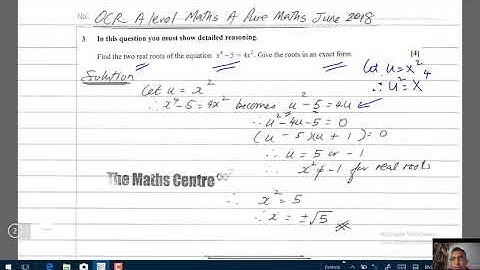 No. OCR A level Maths A Pure Maths June 2018
3 In this question you must show detailed reasoning.
Find the two real roots of the equation x⁴ − 5 = 4x². Give the roots in an exact form. [4]
Solution
Let u = x²
∴ u² = x⁴
Let u = x²
∴ x⁴ − 5 = 4x² becomes u² − 5 = 4u
∴ u² − 4u − 5 = 0
(u − 5)(u + 1) = 0
∴ u = 5 or −1
∴ x² ≠ −1 for real roots
The Maths Centre
∴ x² = 5
∴ x = ±√5
2